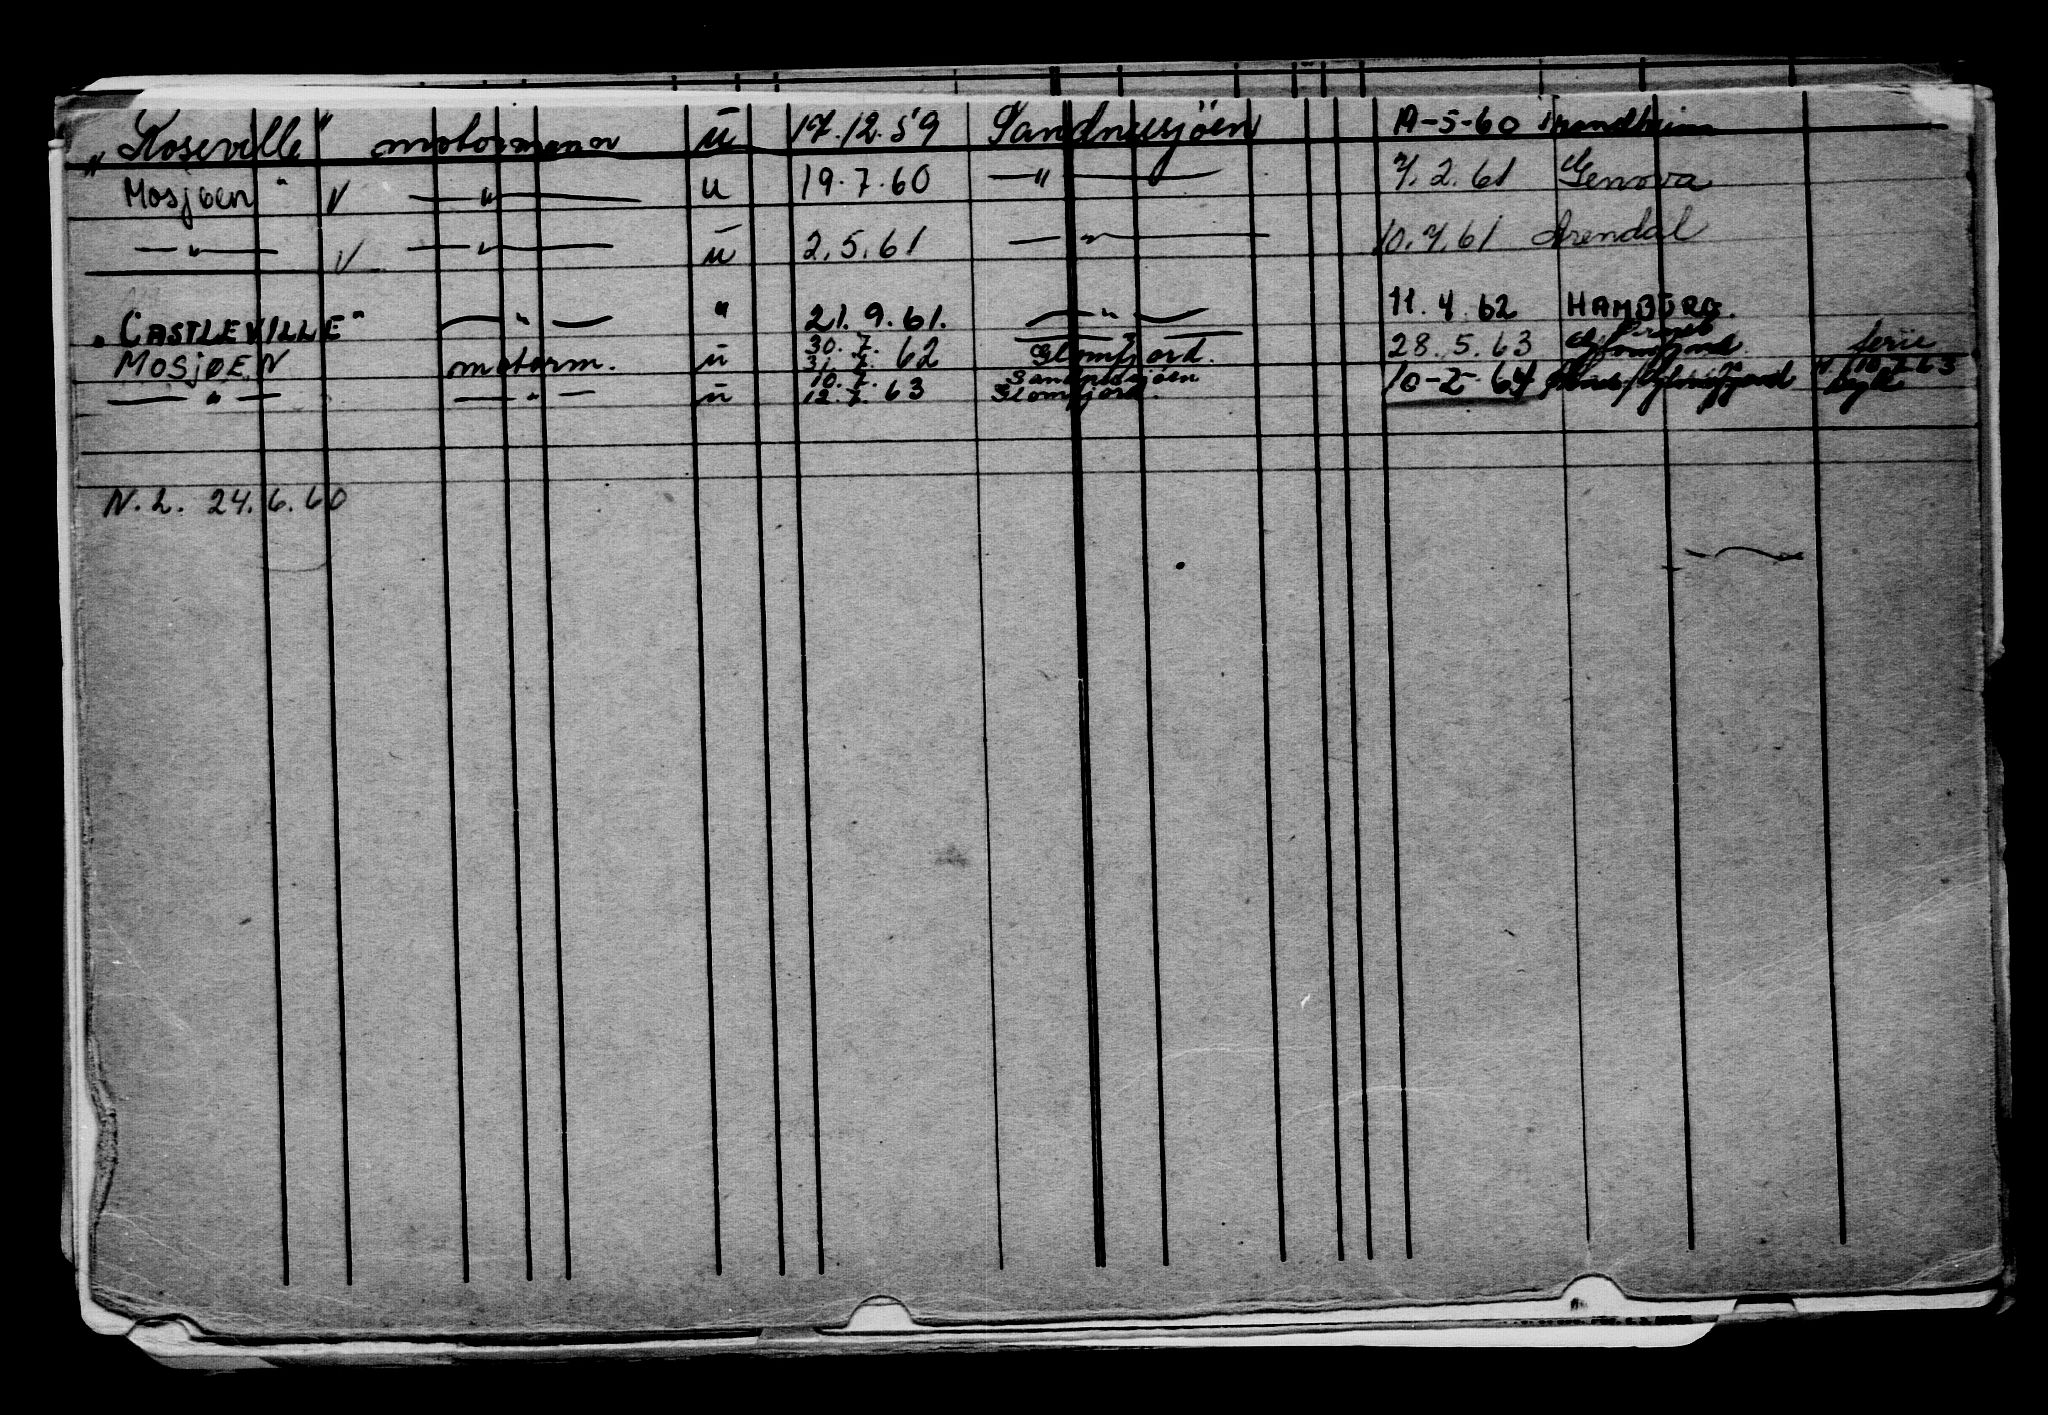 „Roseville" motormann ū 17.12.59 Sandnessjöen 19-5-60 Trondheim
Mosjøen " V —"— u 19.7.60 —"— 7.2.61 Genova
—"— V —"— ū 2.5.61 —"— 10.7.61 Arendal
„CASTLEVILLE" —"— " 21.9.61. —"— 11.4.62 HAMBURG.
MOSJØEN motorm. ū 30.7. 31.7. 62 Glomfjord. 28.5.63 Glomfjord ferie
—"— —"— ū 10.7. 12.7. 63 Sandnessjøen Glomfjord. 10-2-64 10.7.63 syk
N.L. 24.6.60